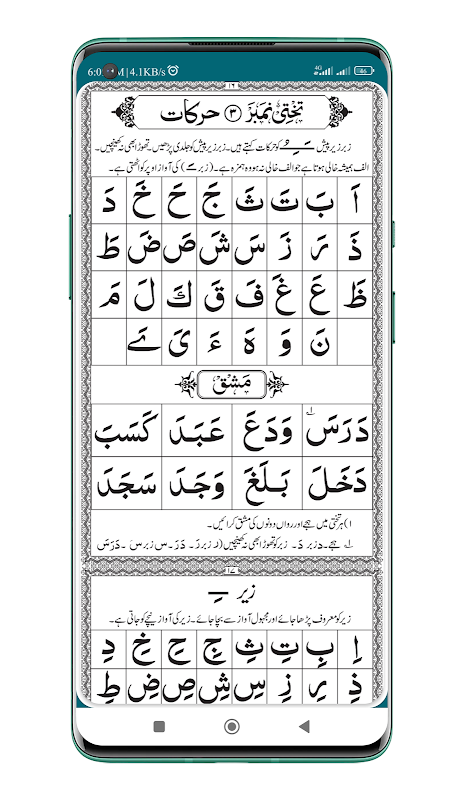 4.1KB/s
4G
۱۶
تختی نمبر ۳ حرکات
زبر زیر پیش کو حرکات کہتے ہیں۔ زبر زیر پیش کو جلدی پڑھیں۔ تھوڑا بھی نہ کھینچیں۔
الف ہمیشہ خالی ہوتا ہے جو الف خالی نہ ہو وہ ہمزہ ہے۔ (زبر ـَ) کی آواز اوپر کو اٹھتی ہے۔
اَ بَ تَ ثَ جَ حَ خَ دَ
ذَ رَ زَ سَ شَ صَ ضَ طَ
ظَ عَ غَ فَ قَ كَ لَ مَ
نَ وَ هَ ءَ یَ ےَ
مشق
دَرَسَ وَدَعَ عَبَدَ کَسَبَ
دَخَلَ بَلَغَ وَجَدَ سَجَدَ
۱) ہر تختی میں ہجے اور رواں دونوں کی مشق کرائیں۔
ہجے۔ د زبر دَ۔ زبر کو تھوڑا بھی نہ کھینچیں (ر زبر رَ۔ دَرَ۔ س زبر سَ۔ دَرَسَ
۱۷
زیر ـِ
زیر کو معروف پڑھا جائے اور مجہول آواز سے بچا جائے۔ زیر کی آواز نیچے کو جاتی ہے۔
اِ بِ تِ ثِ جِ حِ خِ دِ
ذِ رِ زِ سِ شِ صِ ضِ طِ